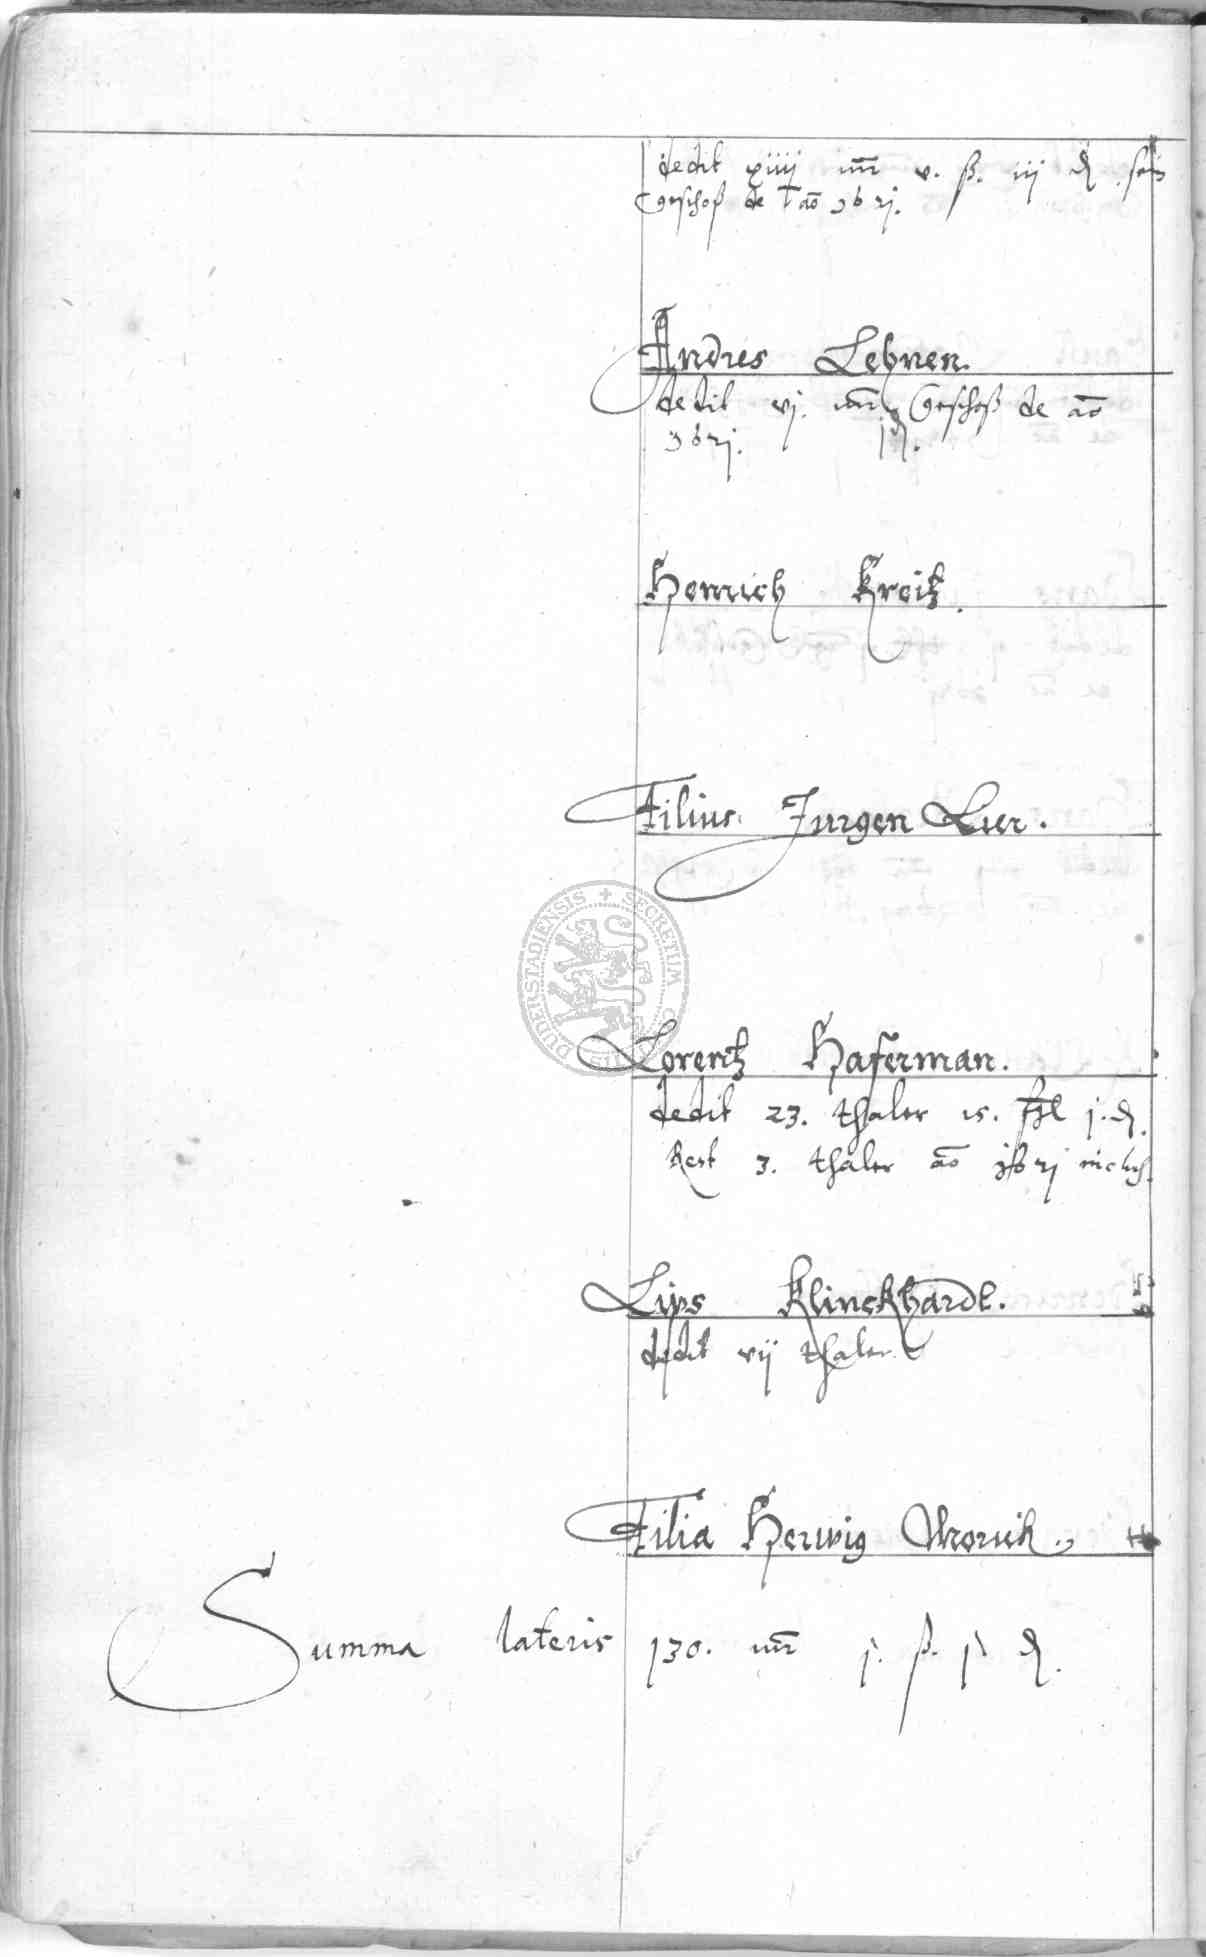 dedit xiiii mr v. ß. iij d. sein
Geschoß de ao 96 
Andres Lehnen.
dedit vj. mr Geschoß de ao
j d.
Henrich Kreitz.
Filius Jurgen Lier.
DUDERSTADIENSIS + SECRETUM
Lorentz Haferman.
dedit 23. thaler 15. ßl j. d.
Rest 3. thaler ao
Lips Klinckhardt.
dedit vij thaler
Filia Herwig
Summa lateris 130. mr j. ß. j d.